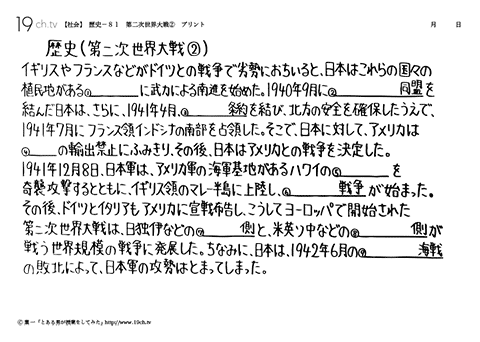 19ch.tv 【社会】 歴史－81 第二次世界大戦② プリント 月 日
歴史(第二次世界大戦②)
イギリスやフランスなどがドイツとの戦争で劣勢におちいると、日本はこれらの国々の
植民地がある ＿＿＿＿ に武力による南進を始めた。1940年9月に ＿＿＿＿ 同盟を
結んだ日本は、さらに、1941年4月、＿＿＿＿ 条約を結び、北方の安全を確保したうえで、
1941年7月にフランス領インドシナの南部を占領した。そこで、日本に対して、アメリカは
＿＿＿＿ の輸出禁止にふみきり、その後、日本はアメリカとの戦争を決定した。
1941年12月8日、日本軍は、アメリカ軍の海軍基地があるハワイの ＿＿＿＿ を
奇襲攻撃するとともに、イギリス領のマレー半島に上陸し、＿＿＿＿ 戦争 が始まった。
その後、ドイツとイタリアもアメリカに宣戦布告し、こうしてヨーロッパで開始された
第二次世界大戦は、日独伊などの ＿＿＿＿ 側と、米英ソ中などの ＿＿＿＿ 側が
戦う世界規模の戦争に発展した。ちなみに、日本は、1942年6月の ＿＿＿＿ 海戦
の敗北によって、日本軍の攻勢はとまってしまった。
© 葉一「とある男が授業をしてみた」http://www.19ch.tv